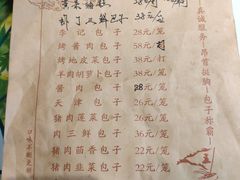 虾丁三鲜包子 38元/笼
李记包子 28元/笼
烤酱肉包子 58元/打
烤地皮菜包子 38元/打
羊肉胡萝卜包子 38元/笼
酱肉包子 28元/笼
天津包子 26元/笼
猪肉三鲜包子 36元/笼
猪肉茴香包子 26元/笼
猪肉韭菜包子 22元/笼
猪肉菠菜包子 22元/笼
真诚服务·昂首挺胸~包子称霸~